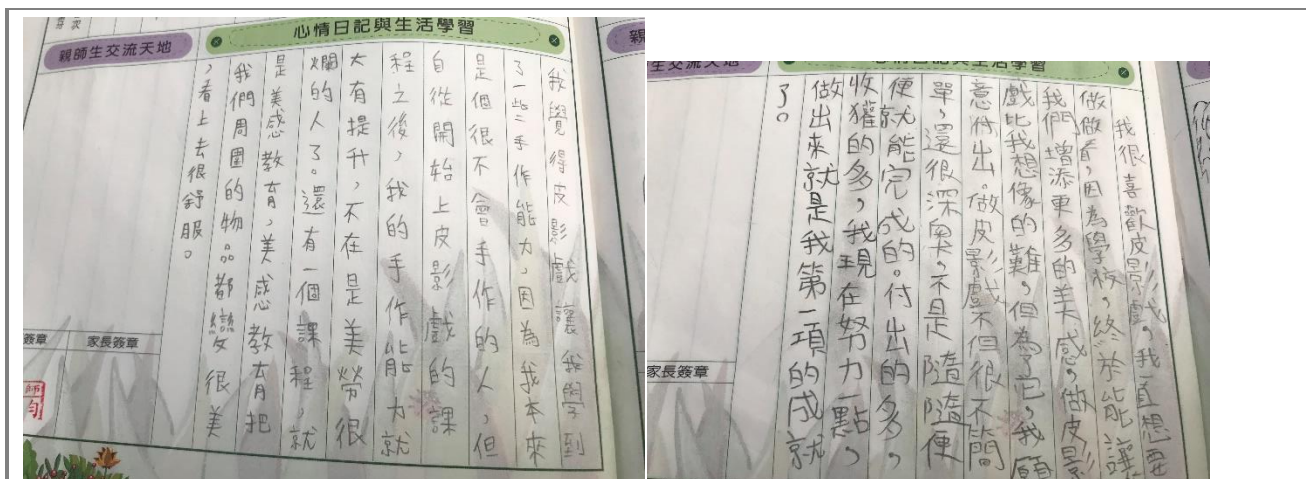 心情日記與生活學習
親師生交流天地
我覺得皮影戲讓我學到
了一些手作能力,因為我本來
是個很不會手作的人,但
自從開始上皮影戲的課
程之後,我的手作能力就
大有提升,不在是美勞很
爛的人了。還有一個課程,就
是美感教育,美感教育把
我們周圍的物品都變很美
,看上去很舒服。
家長簽章
心情日記與生活學習
生交流天地
我很喜歡皮影戲,我一直想要
做做看,因為學校,終於能讓
我們增添更多的美感。做皮影
戲比我想像的難。但為了它,我願
意付出。做皮影戲不但很不簡
單,還很深奧。不是隨隨便
便就能完成的。付出的多,
收獲的多,我現在努力一點,
做出來就是我第一項的成就
了。
家長簽章